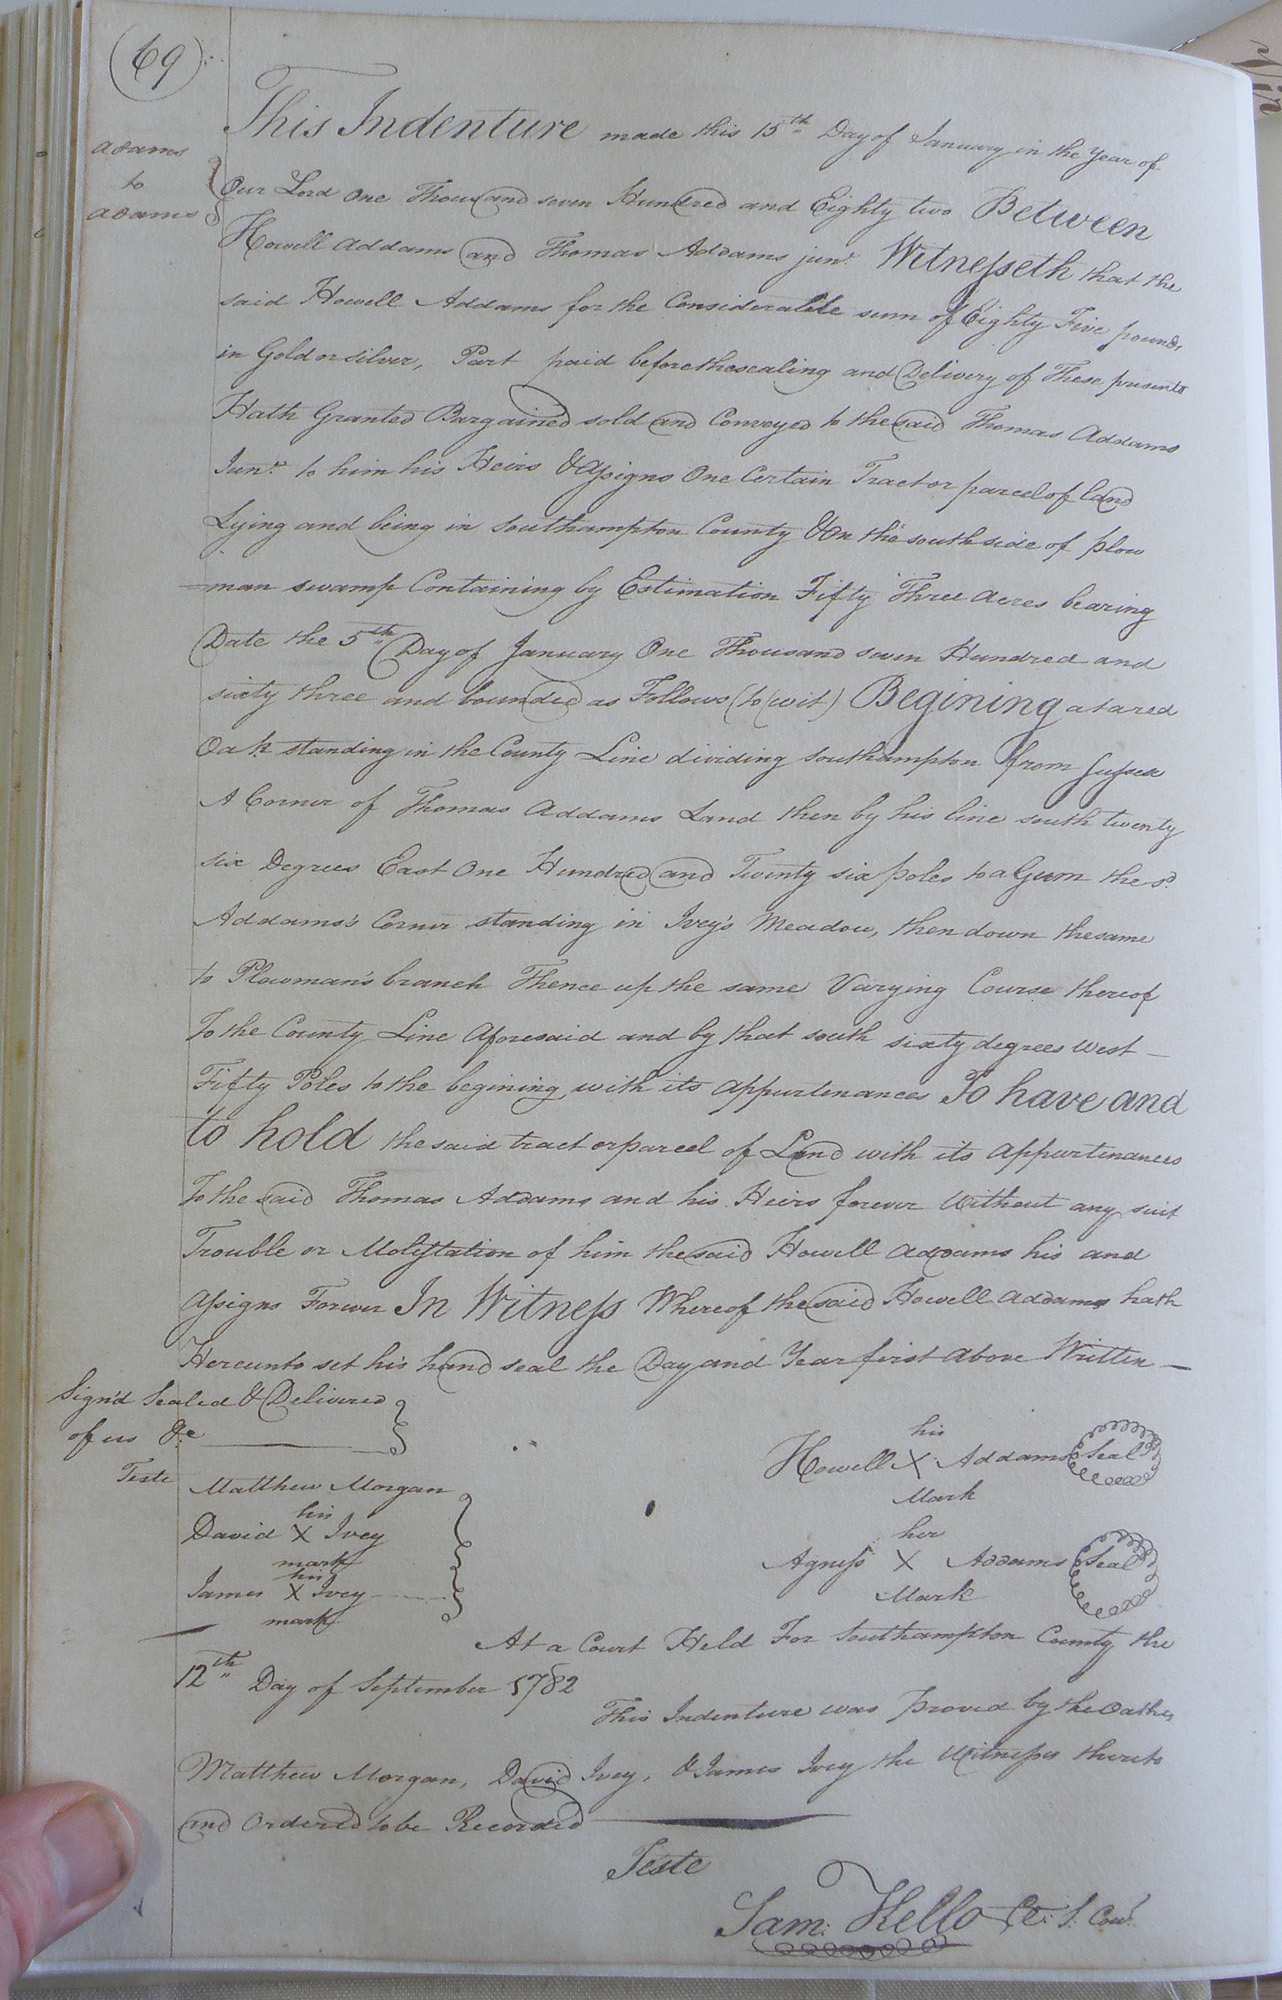 69
Adams
to
Adams
This Indenture made this 15th Day of January in the Year of
Our Lord One Thousand seven Hundred and Eighty two Between
Howell Addams and Thomas Addams junr. Witnesseth that the
said Howell Addams for the Considerable sum of Eighty Five pounds
in Gold or silver, Part paid before the sealing and Delivery of These presents
Hath Granted Bargained sold and Conveyed to the said Thomas Addams
Junr. to him his Heirs & Assigns One Certain Tract or parcel of land
Lying and being in Southampton County & On the south side of plow
=man swamp Containing by Estimation Fifty Three Acres bearing
Date the 5th Day of January One Thousand seven Hundred and
sixty three and bounded as Follows (to (wit) Begining at a red
Oak standing in the County Line dividing Southampton from Sussex
A Corner of Thomas Addams Land then by his line south twenty
six Degrees East One Hundred and Twenty six poles to a Gum the sd.
Addams's Corner standing in Ivey's Meadow, then down the same
to Plowman's branch Thence up the same Varying Course thereof
To the County Line Aforesaid and by that south sixty degrees West –
Fifty Poles to the begining, with its appurtenances To have and
to hold the said tract or parcel of Land with its appurtenances
To the said Thomas Addams and his Heirs forever Without any suit
Trouble or Molestation of him the said Howell Addams his and
Assigns Forever In Witness Whereof the said Howell Addams hath
Hereunto set his hand seal the Day and Year first Above Written –
Sign'd Sealed & Delivered
of us &c
Teste Matthew Morgan
his
David X Ivey
mark
his
James X Ivey
mark
his
Howell X Addams Seal
Mark
her
Agness X Addams Seal
Mark
At a Court Held For Southampton County the
12th Day of September 1782
This Indenture was proved by the Oathes
Matthew Morgan, David Ivey, & James Ivey the Witnesses thereto
and Ordered to be Recorded
Teste
Sam: Kello